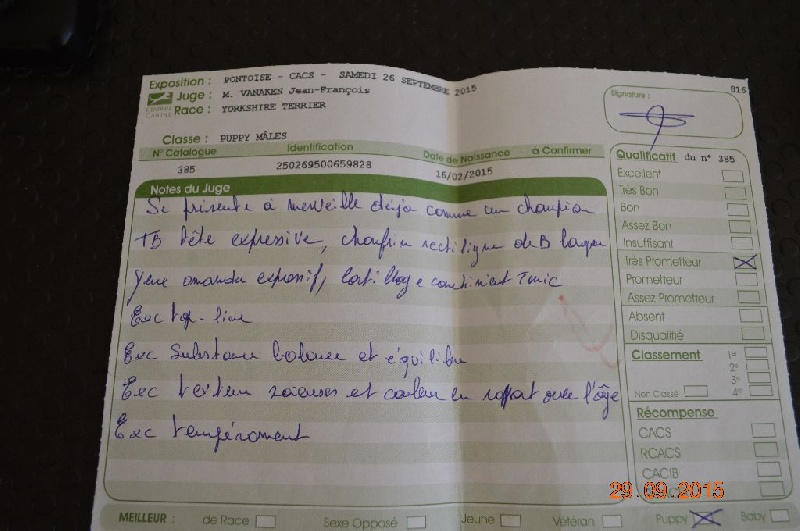 Exposition : PONTOISE - CACS - SAMEDI 26 SEPTEMBRE 2015
Juge : M. VANAKEN Jean-François
Race : YORKSHIRE TERRIER
Classe : PUPPY MÂLES
N° Catalogue Identification Date de Naissance à Confirmer
385 250269500659828 16/02/2015
Notes du Juge
Se présente à merveille déjà comme un champion
TB tête expressive, chanfrein rectiligne de B
Yeux expressif,
Exc top-line
Exc Substance balance et équilibre
Exc texture soieuses et couleur en rapport avec l'âge
Exc tempérament
Signature :
816
Qualificatif du n° 385
Excellent
Très Bon
Bon
Assez Bon
Insuffisant
Très Prometteur
Prometteur
Assez Prometteur
Absent
Disqualifié
Classement 1er
2e
3e
Non Classé 4e
Récompense
CACS
RCACS
CACIB
29.09.2015
MEILLEUR : de Race Sexe Opposé Jeune Vétéran Puppy Baby